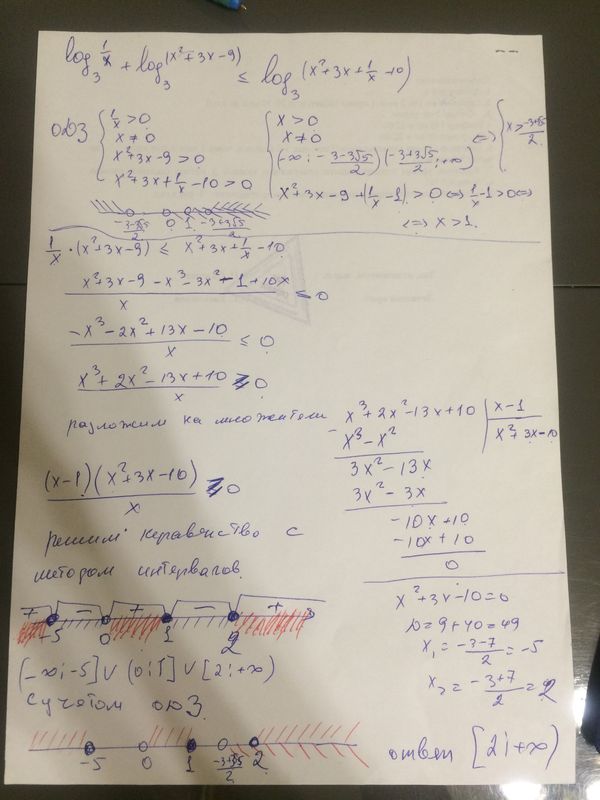 log₃ 1/x + log₃ (x²+3x-9) ≤ log₃ (x²+3x+1/x-10)
ОДЗ { 1/x > 0
x ≠ 0
x²+3x-9 > 0
x²+3x+1/x-10 > 0
{ x > 0
x ≠ 0
(-∞; -3-3√5/2) (-3+3√5/2; +∞)
x²+3x-9+(1/x-1) > 0 ⇔ 1/x-1 > 0 ⇔
⇔ x > 1
⇔ { x > -3+3√5/2
-3-3√5/2 0 1 -3+3√5/2
1/x · (x²+3x-9) ≤ x²+3x+1/x-10
x²+3x-9-x³-3x²-1+10x / x ≤ 0
-x³-2x²+13x-10 / x ≤ 0
x³+2x²-13x+10 / x ≥ 0
разложим на множители
x³+2x²-13x+10 | x-1
x³-x² | x²+3x-10
3x²-13x
3x²-3x
-10x+10
-10x+10
0
(x-1)(x²+3x-10) / x ≥ 0
решим неравенство с
методом интервалов.
+ - + - +
-5 0 1 2
(-∞;-5] ∪ (0;1] ∪ [2;+∞)
x²+3x-10=0
D = 9+40=49
x₁ = -3-7/2 = -5
x₂ = -3+7/2 = 2
с учётом ОДЗ
-5 0 1 -3+3√5/2 2
ответ [2;+∞)